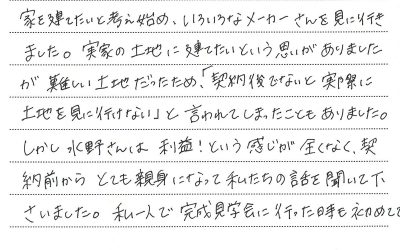 家を建てたいと考え始め、いろいろなメーカーさんを見に行き
ました。実家の土地に建てたいという思いがありました
が難しい土地だったため、「契約後でないと実際に
土地を見に行けない」と言われてしまったこともありました。
しかし水野さんは利益！という感じが全くなく、契
約前からとても親身になって私たちの話を聞いて下
さいました。私一人で完成見学会に行った時も初めて